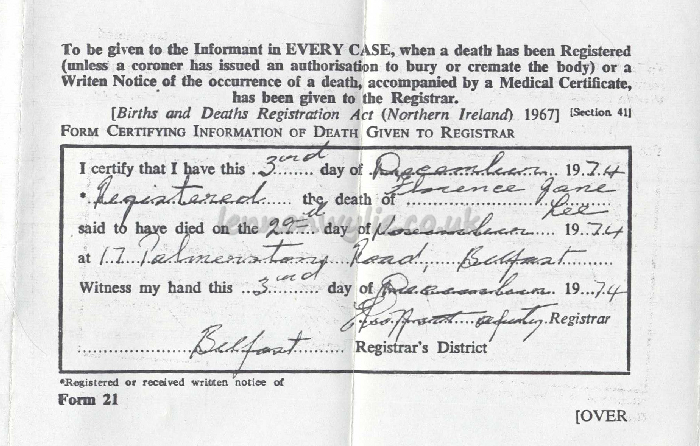 To be given to the Informant in EVERY CASE, when a death has been Registered
(unless a coroner has issued an authorisation to bury or cremate the body) or a
Writen Notice of the occurrence of a death, accompanied by a Medical Certificate,
has been given to the Registrar.
[Births and Deaths Registration Act (Northern Ireland) 1967] [Section 41]
FORM CERTIFYING INFORMATION OF DEATH GIVEN TO REGISTRAR
I certify that I have this 3rd day of December 1974
*Registered the death of Florence Jane
Lee
said to have died on the 29th day of November 1974
at 17 Palmerston Road, Belfast
Witness my hand this 3rd day of December 1974
deputy Registrar
Belfast Registrar's District
*Registered or received written notice of
Form 21
[OVER